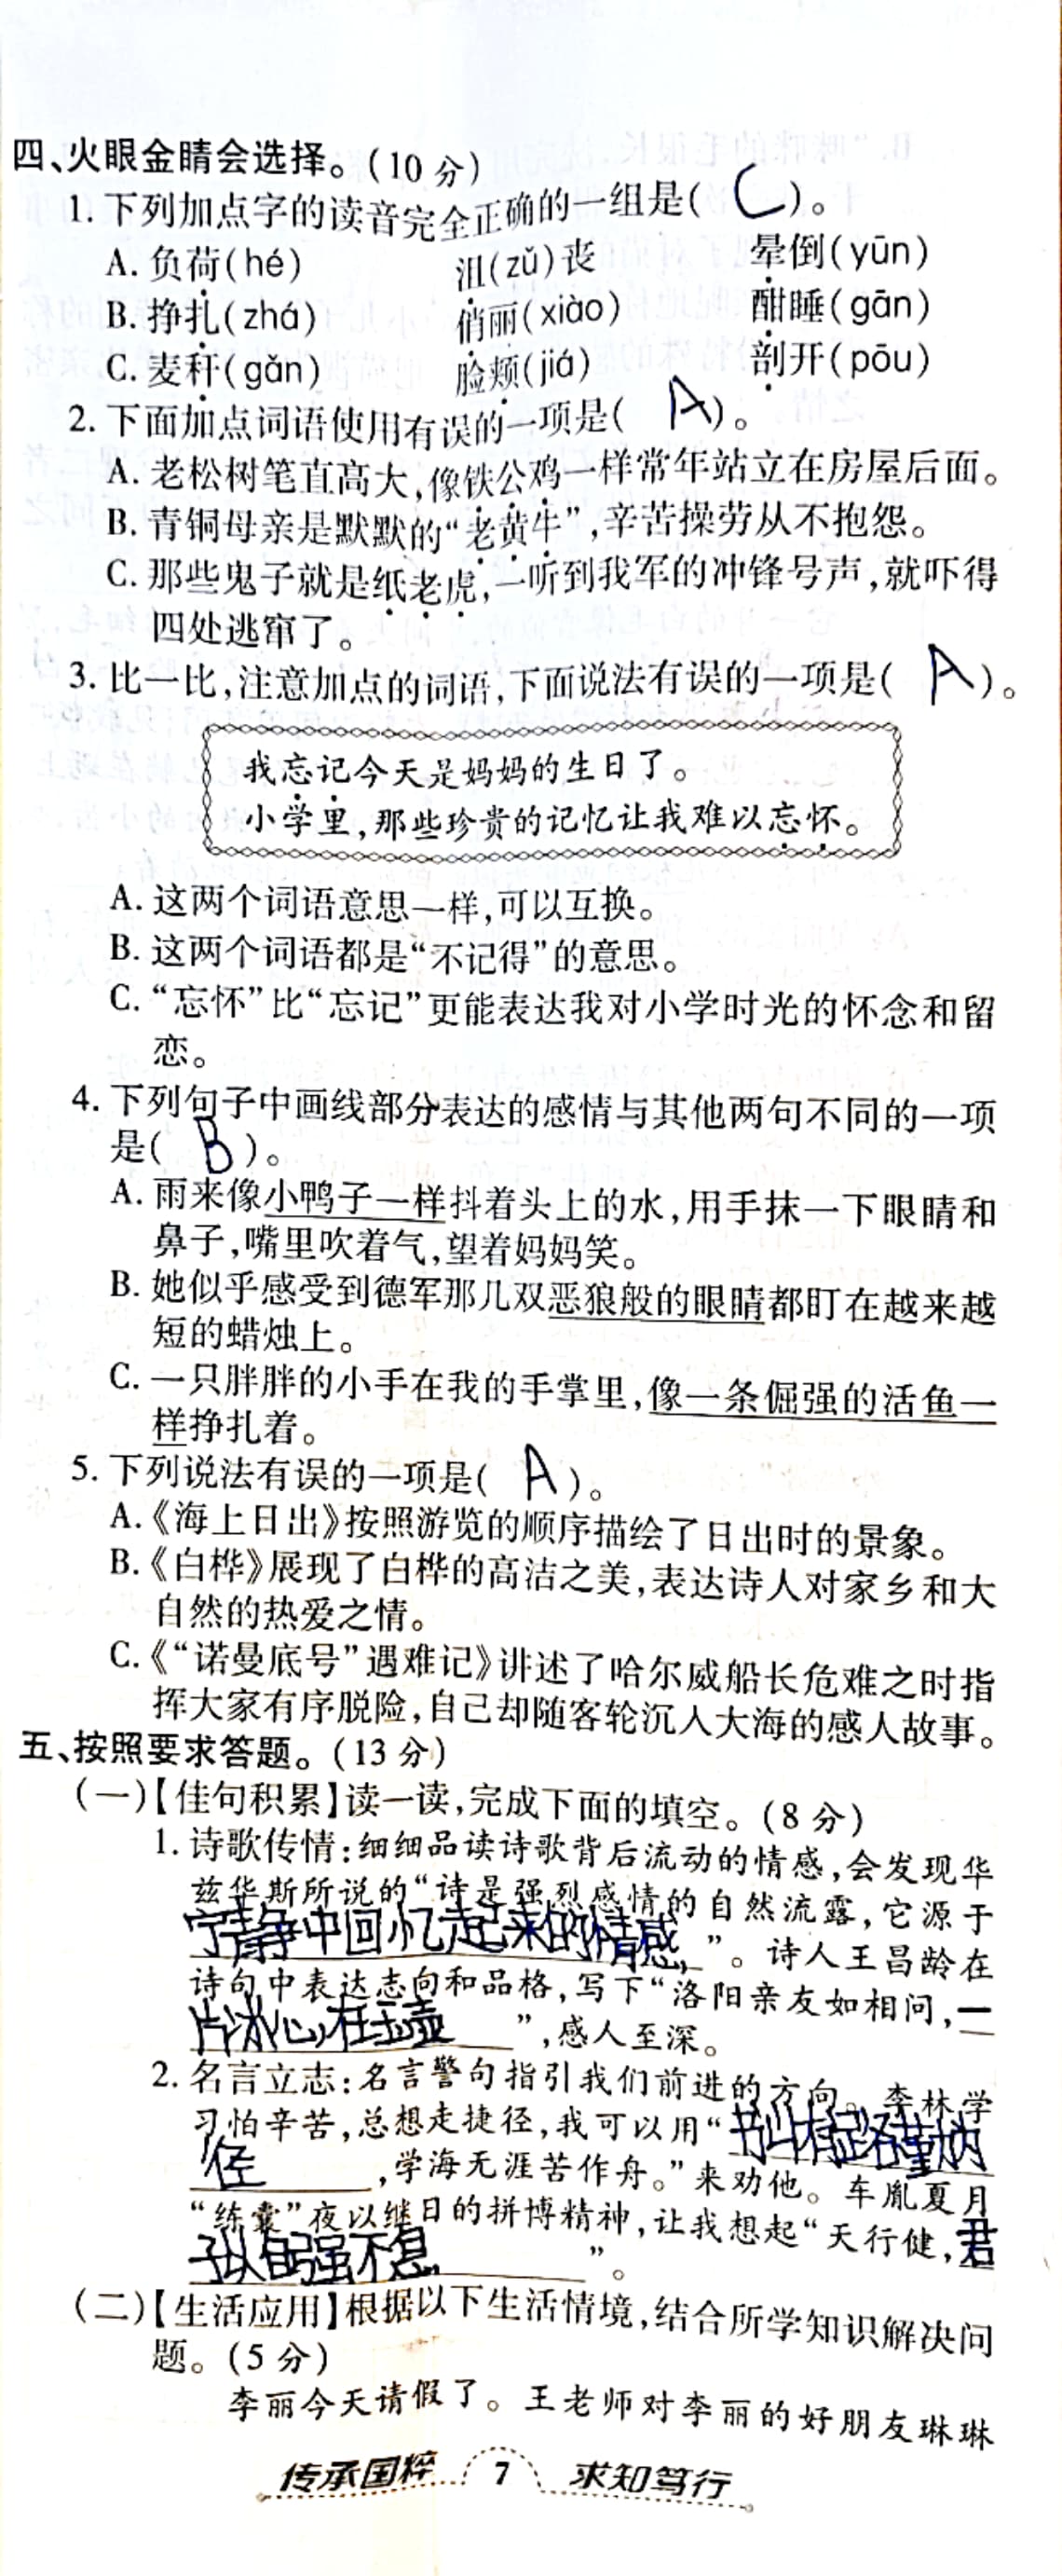 四、火眼金睛会选择。(10分)
1. 下列加点字的读音完全正确的一组是( C )。
A. 负荷(hé) 沮(zǔ)丧 晕倒(yūn)
B. 挣扎(zhá) 俏丽(xiào) 酣睡(gān)
C. 麦秆(gǎn) 脸颊(jiá) 剖开(pōu)
2. 下面加点词语使用有误的一项是( A )。
A. 老松树笔直高大,像铁公鸡一样常年站立在房屋后面。
B. 青铜母亲是默默的“老黄牛”,辛苦操劳从不抱怨。
C. 那些鬼子就是纸老虎,一听到我军的冲锋号声,就吓得
四处逃窜了。
3. 比一比,注意加点的词语,下面说法有误的一项是( A )。
我忘记今天是妈妈的生日了。
小学里,那些珍贵的记忆让我难以忘怀。
A. 这两个词语意思一样,可以互换。
B. 这两个词语都是“不记得”的意思。
C. “忘怀”比“忘记”更能表达我对小学时光的怀念和留
恋。
4. 下列句子中画线部分表达的感情与其他两句不同的一项
是( B )。
A. 雨来像小鸭子一样抖着头上的水,用手抹一下眼睛和
鼻子,嘴里吹着气,望着妈妈笑。
B. 她似乎感受到德军那几双恶狼般的眼睛都盯在越来越
短的蜡烛上。
C. 一只胖胖的小手在我的手掌里,像一条倔强的活鱼一
样挣扎着。
5. 下列说法有误的一项是( A )。
A.《海上日出》按照游览的顺序描绘了日出时的景象。
B.《白桦》展现了白桦的高洁之美,表达诗人对家乡和大
自然的热爱之情。
C.《“诺曼底号”遇难记》讲述了哈尔威船长危难之时指
挥大家有序脱险,自己却随客轮沉入大海的感人故事。
五、按照要求答题。(13分)
(一)【佳句积累】读一读,完成下面的填空。(8分)
1. 诗歌传情:细细品读诗歌背后流动的情感,会发现华
兹华斯所说的“诗是强烈感情的自然流露,它源于
宁静中回忆起来的情感,”。诗人王昌龄在
诗句中表达志向和品格,写下“洛阳亲友如相问,一
片冰心在玉壶”,感人至深。
2. 名言立志:名言警句指引我们前进的方向。李林学
习怕辛苦,总想走捷径,我可以用“书山有路勤为
径,学海无涯苦作舟。”来劝他。车胤夏月
“练囊”夜以继日的拼博精神,让我想起“天行健,君
子以自强不息”。
(二)【生活应用】根据以下生活情境,结合所学知识解决问
题。(5分)
李丽今天请假了。王老师对李丽的好朋友琳琳
传承国粹 7 求知笃行